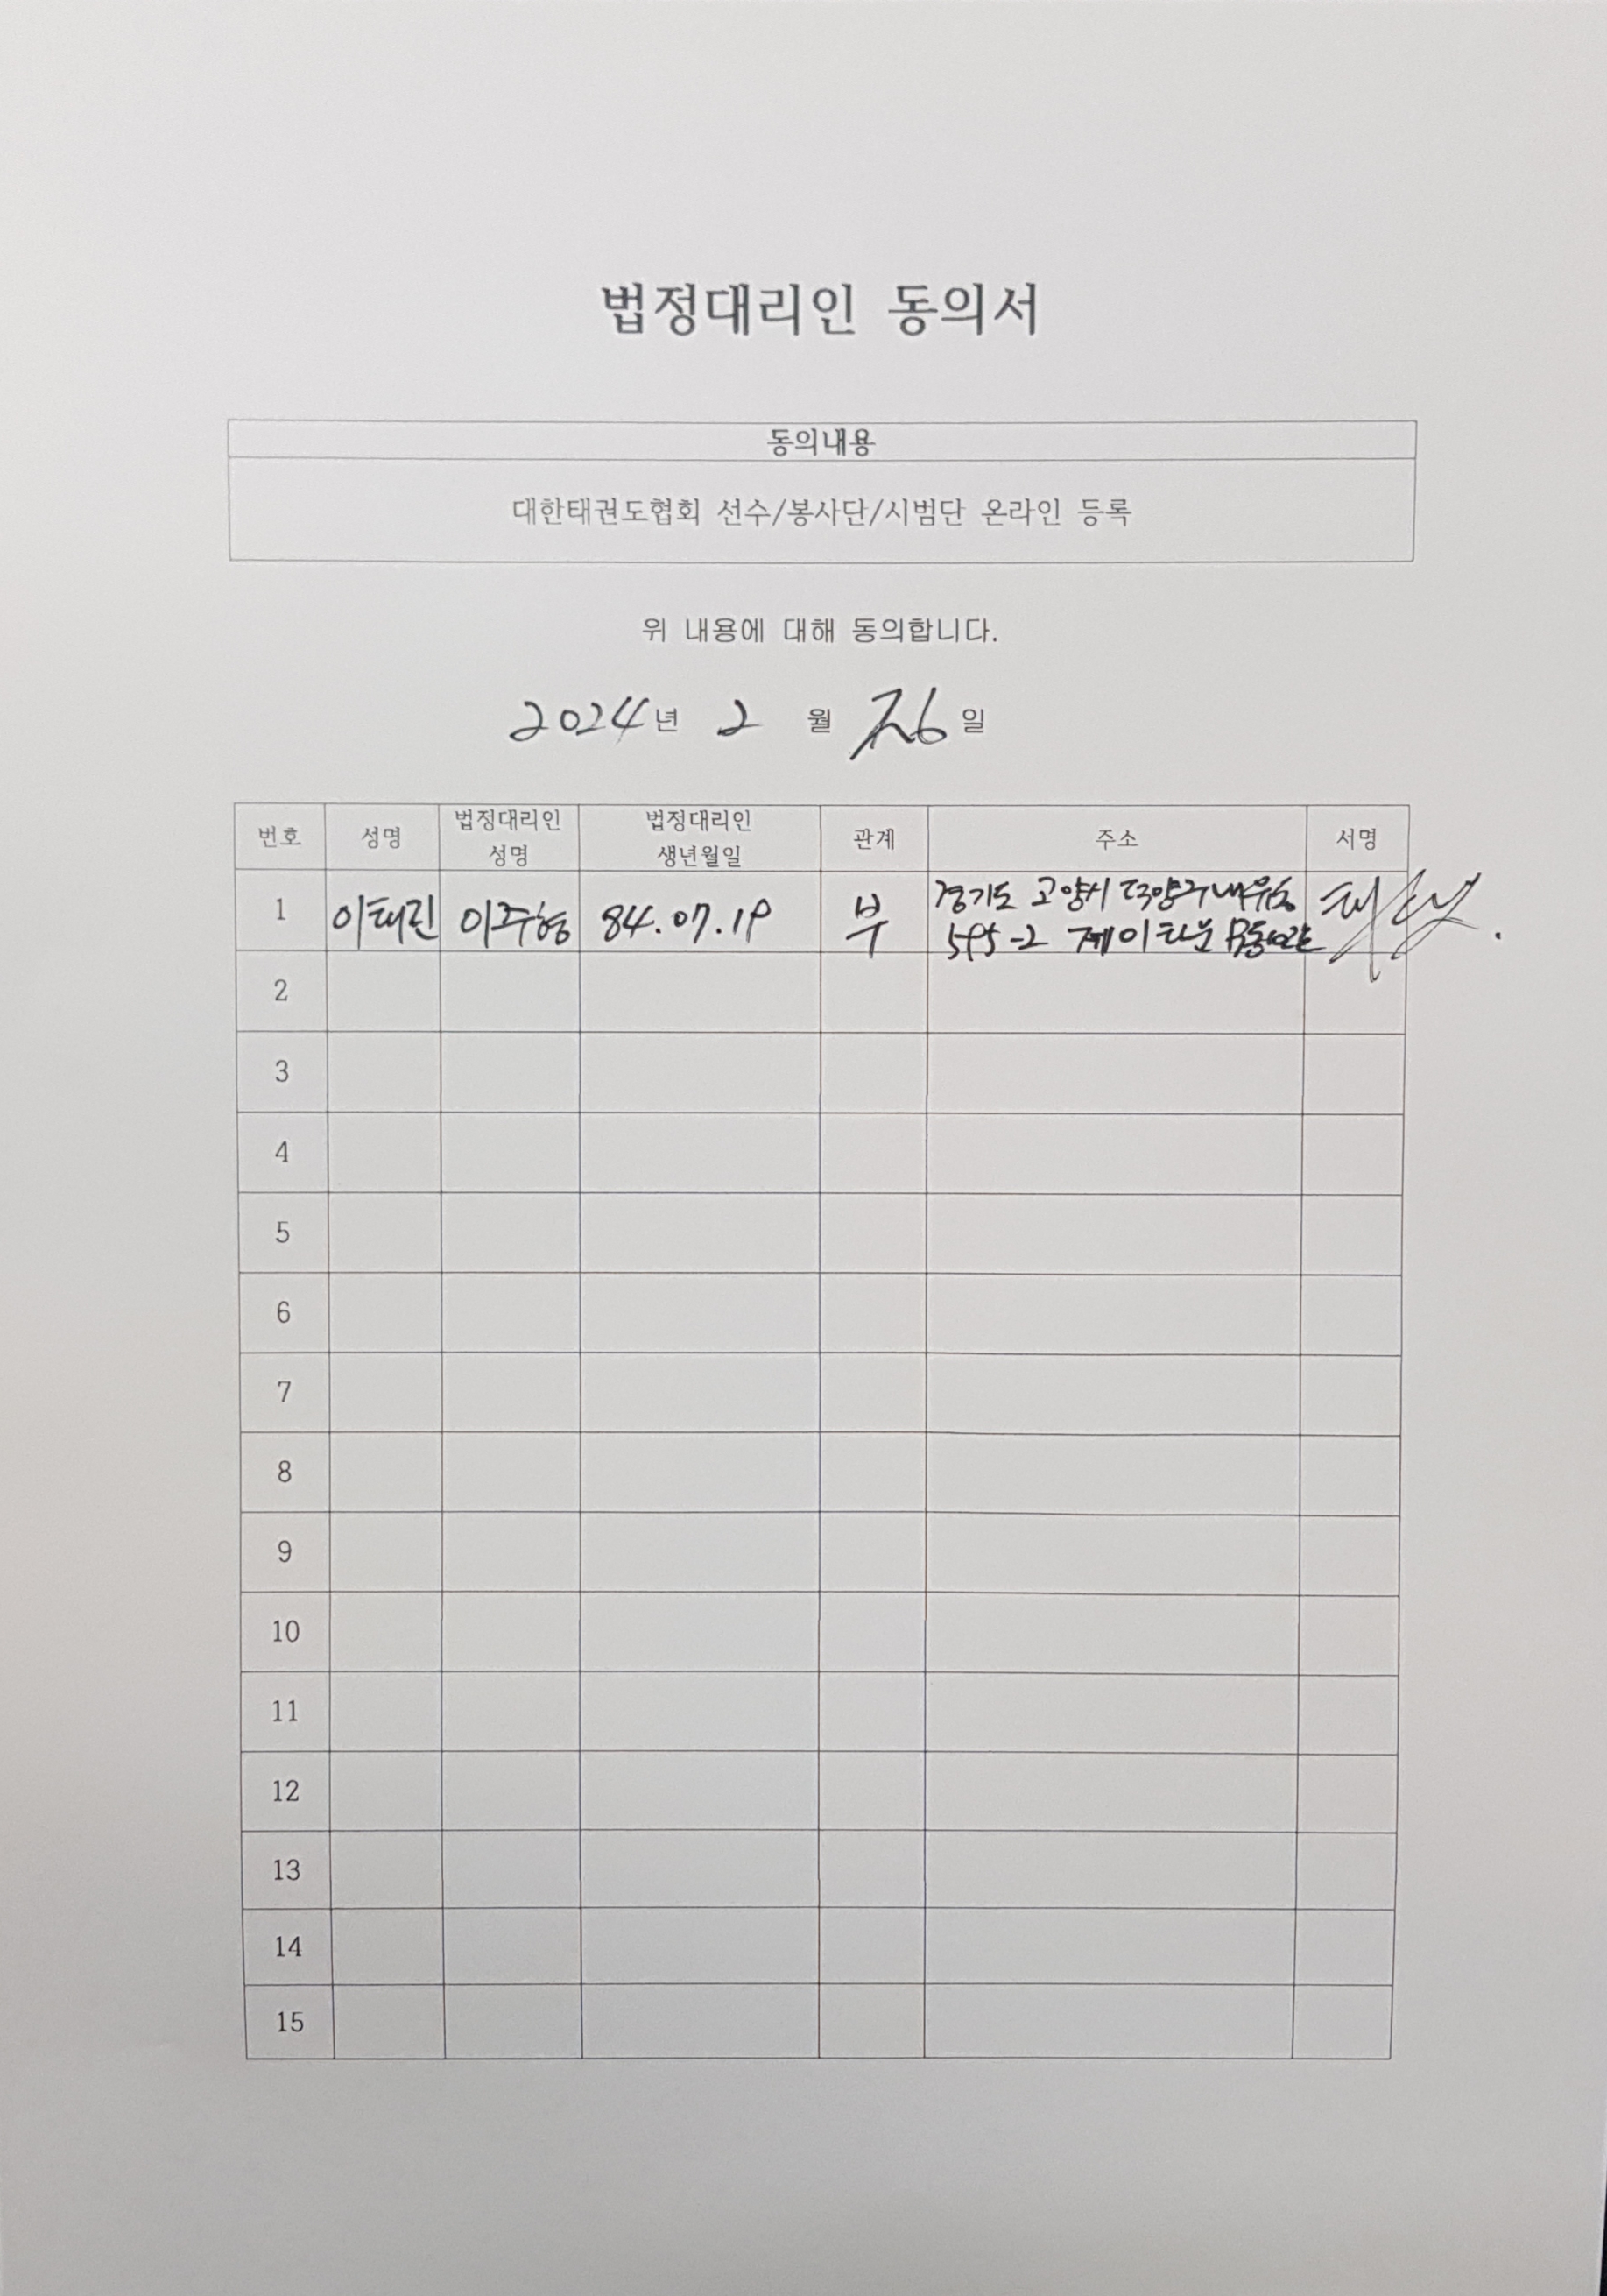 법정대리인 동의서
동의내용
대한태권도협회 선수/봉사단/시범단 온라인 등록
위 내용에 대해 동의합니다.
2024년 2 월 26일
번호 성명 법정대리인 성명 법정대리인 생년월일 관계 주소 서명
1 이태린 이주형 84.07.19 부 경기도 고양시 덕양구 내유동
595-2 제이타운
2
3
4
5
6
7
8
9
10
11
12
13
14
15